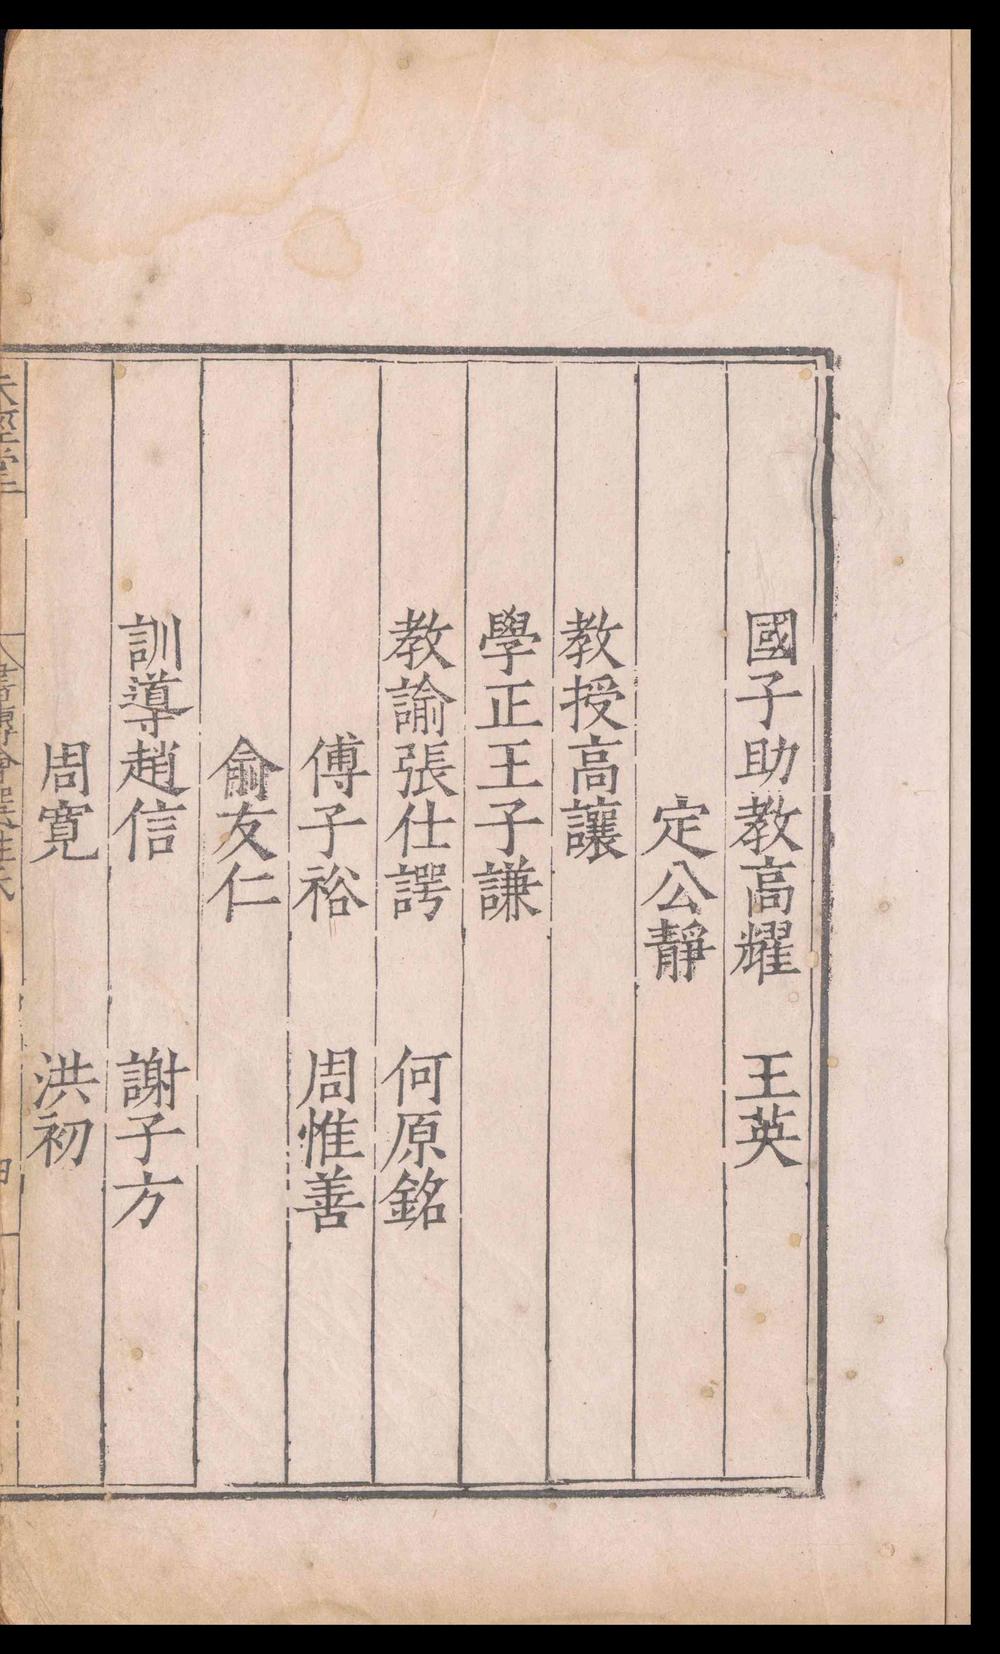 國子助教高耀　王英
定公靜
教授高讓
學正王子謙
教諭張仕諤　何原銘
傅子裕　周惟善
俞友仁
訓導趙信　謝子方
周寬　洪初